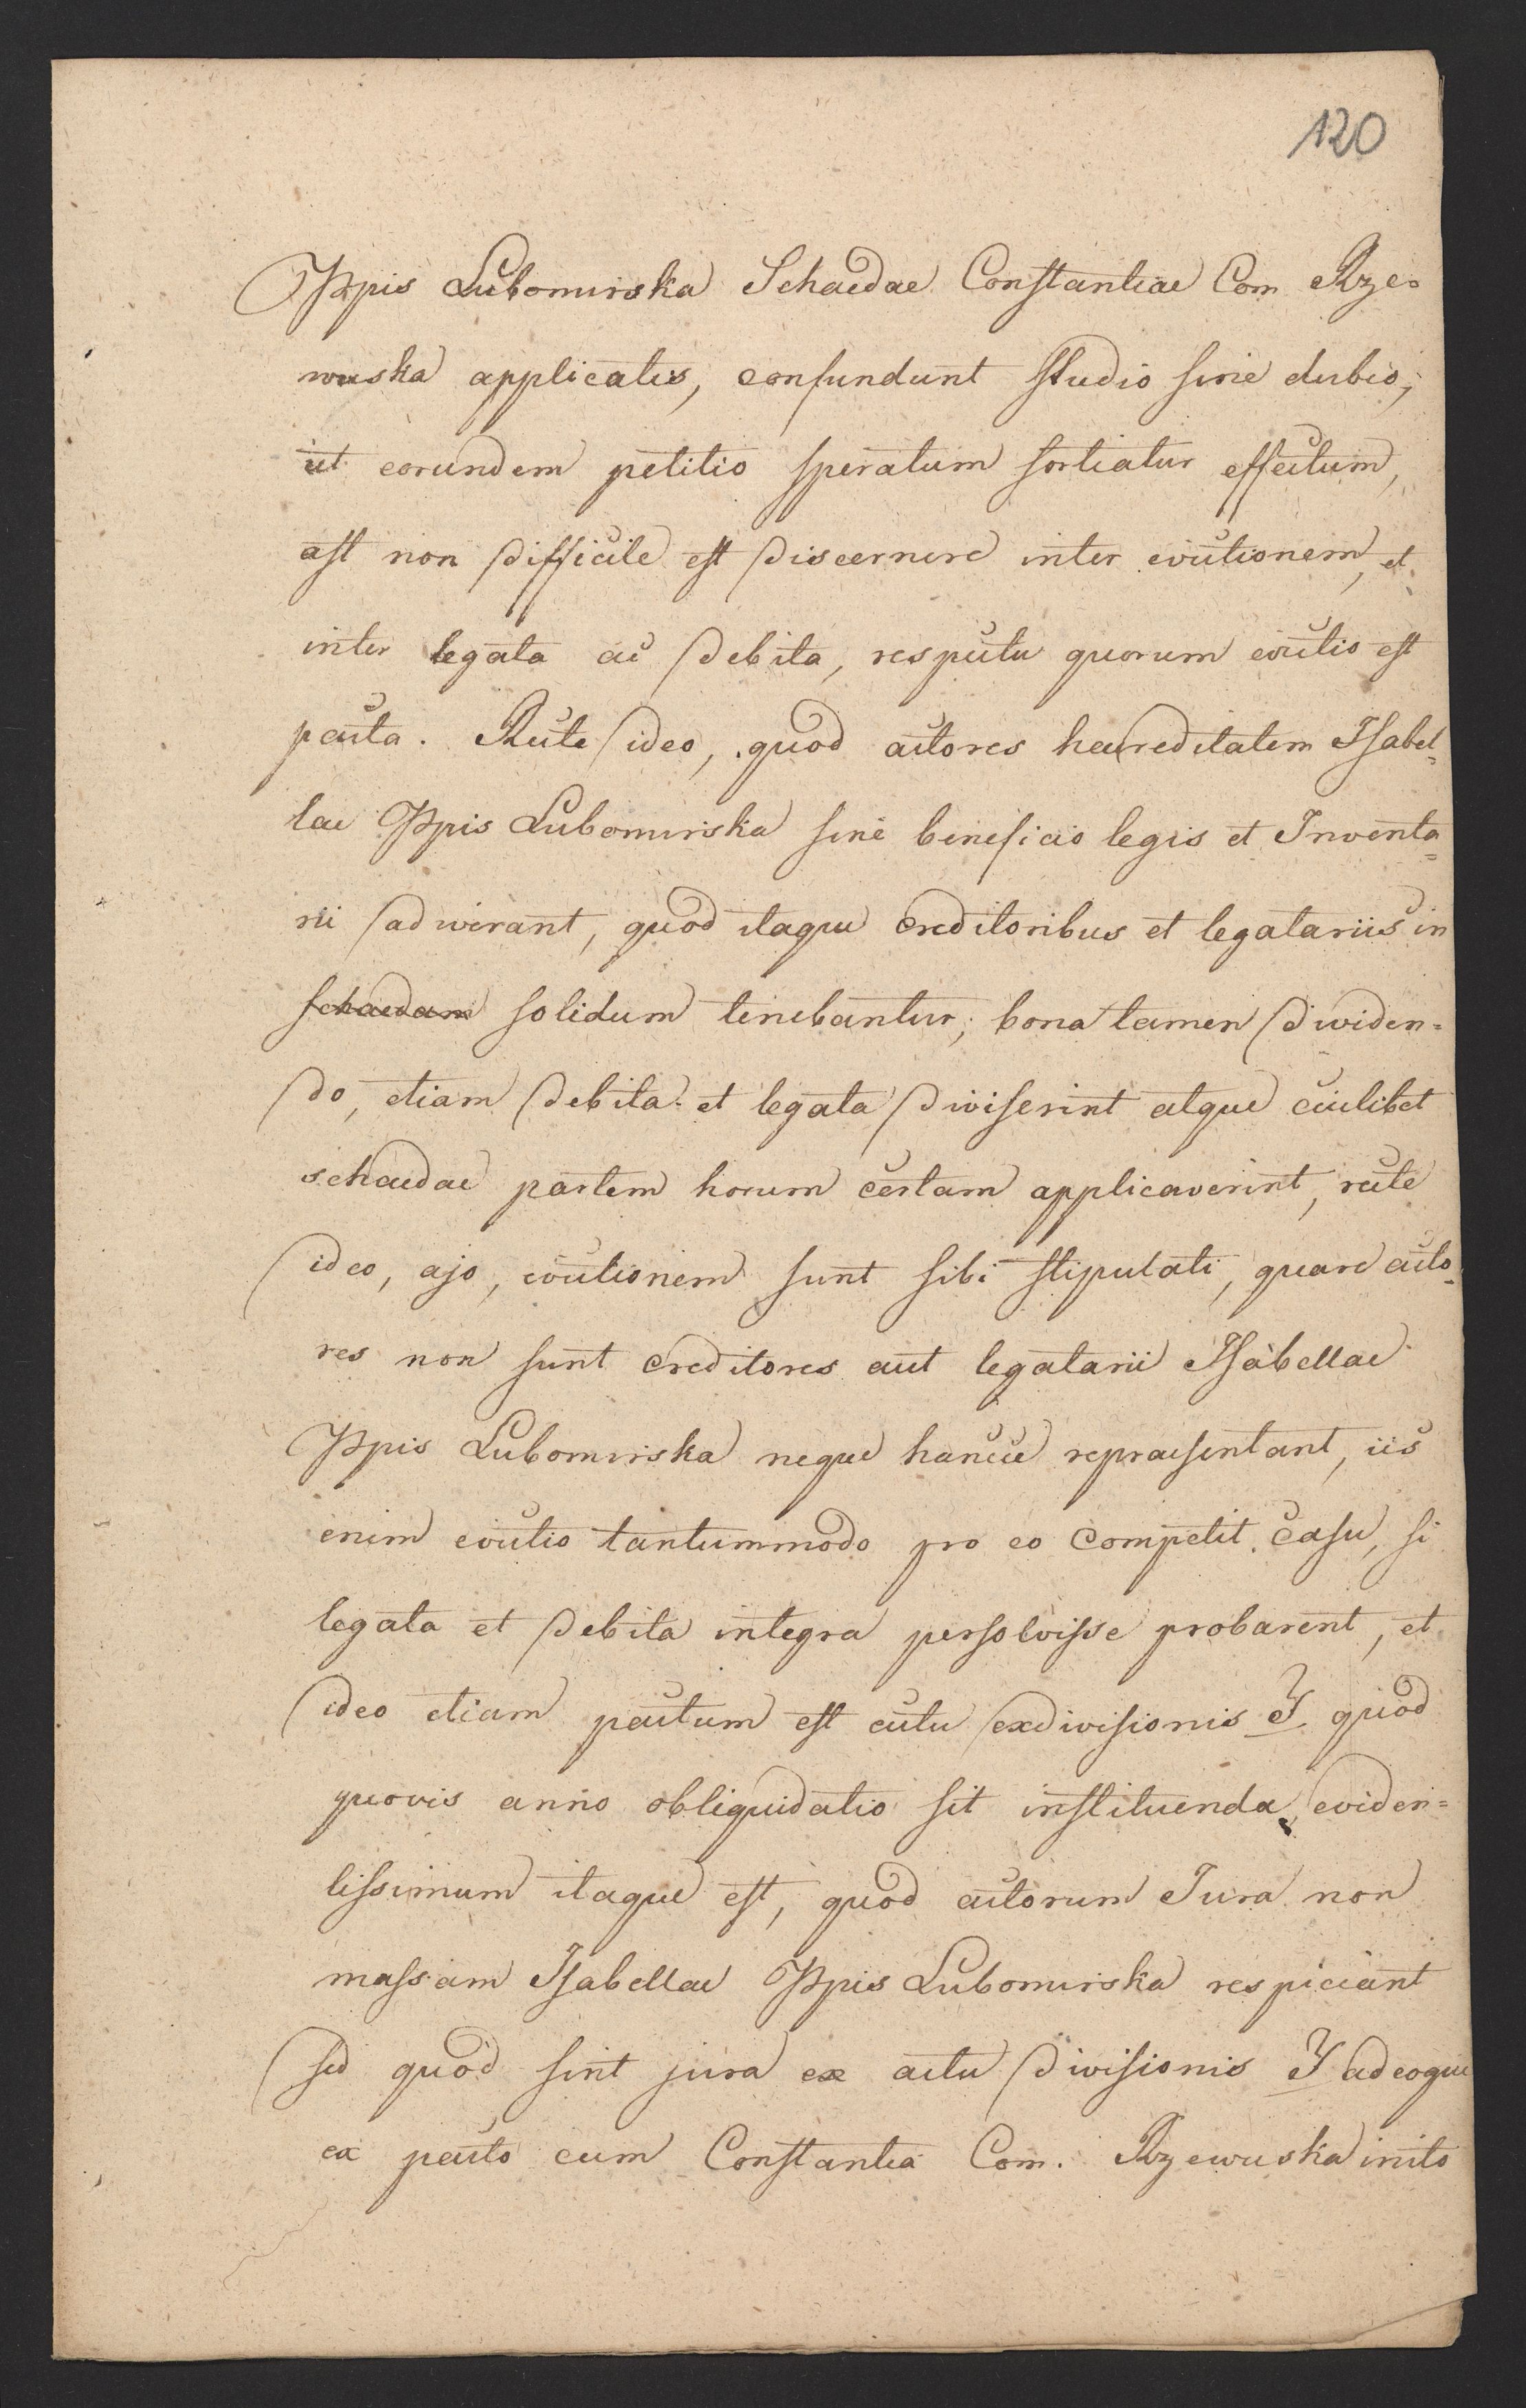 120
Ppis Lubomirska Schaedae Constantiae Com Rze=
wuska applicatis, confundunt studio sine dubio,
ut eorundem petitio speratum sortiatur effectum,
ast non difficile est discernere inter evictionem, et
inter legata ac debita, respectu quorum evictio est
pacta. Recte ideo, quod actores haereditatem Isabel=
lae Ppis Lubomirska sine beneficio legis et Inventa=
rii adiverant, quod itaque creditoribus et legatariis in
schaedam solidum tenebantur; bona tamen dividen=
do, etiam debita et legata diviserint atque cuilibet
schaedae partem horum certam applicaverint, recte
ideo, ajo, evictionem sunt sibi stipulati, quare acto=
res non sunt creditores aut legatarii Isabellae
Ppis Lubomirska neque hancce repraesentant, iis
enim evictio tantummodo pro eo competit casu, si
legata et debita integra persolvisse probarent, et
ideo etiam pactum est actu exdivisionis J quod
quovis anno obliquidatio sit instituenda, eviden=
tissimum itaque est, quod actorum Jura non
massam Isabellae Ppis Lubomirska respiciant
sed quod sint jura ex actu divisionis J adeoque
ex pacto cum Constantia Com. Rzewuska inito